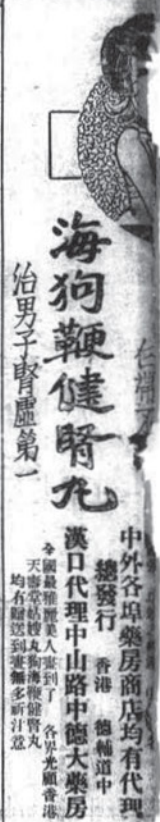 海狗鞭健腎丸
治男子腎虛第一
中外各埠藥房商店均有代理
總發行 香港 德輔道中
漢口代理中山路中德大藥房
國最雅麗美人畫到了 各界光顧香港
天壽堂姑嫂丸狗海鞭健腎丸
均有贈送到畫無多祈注意